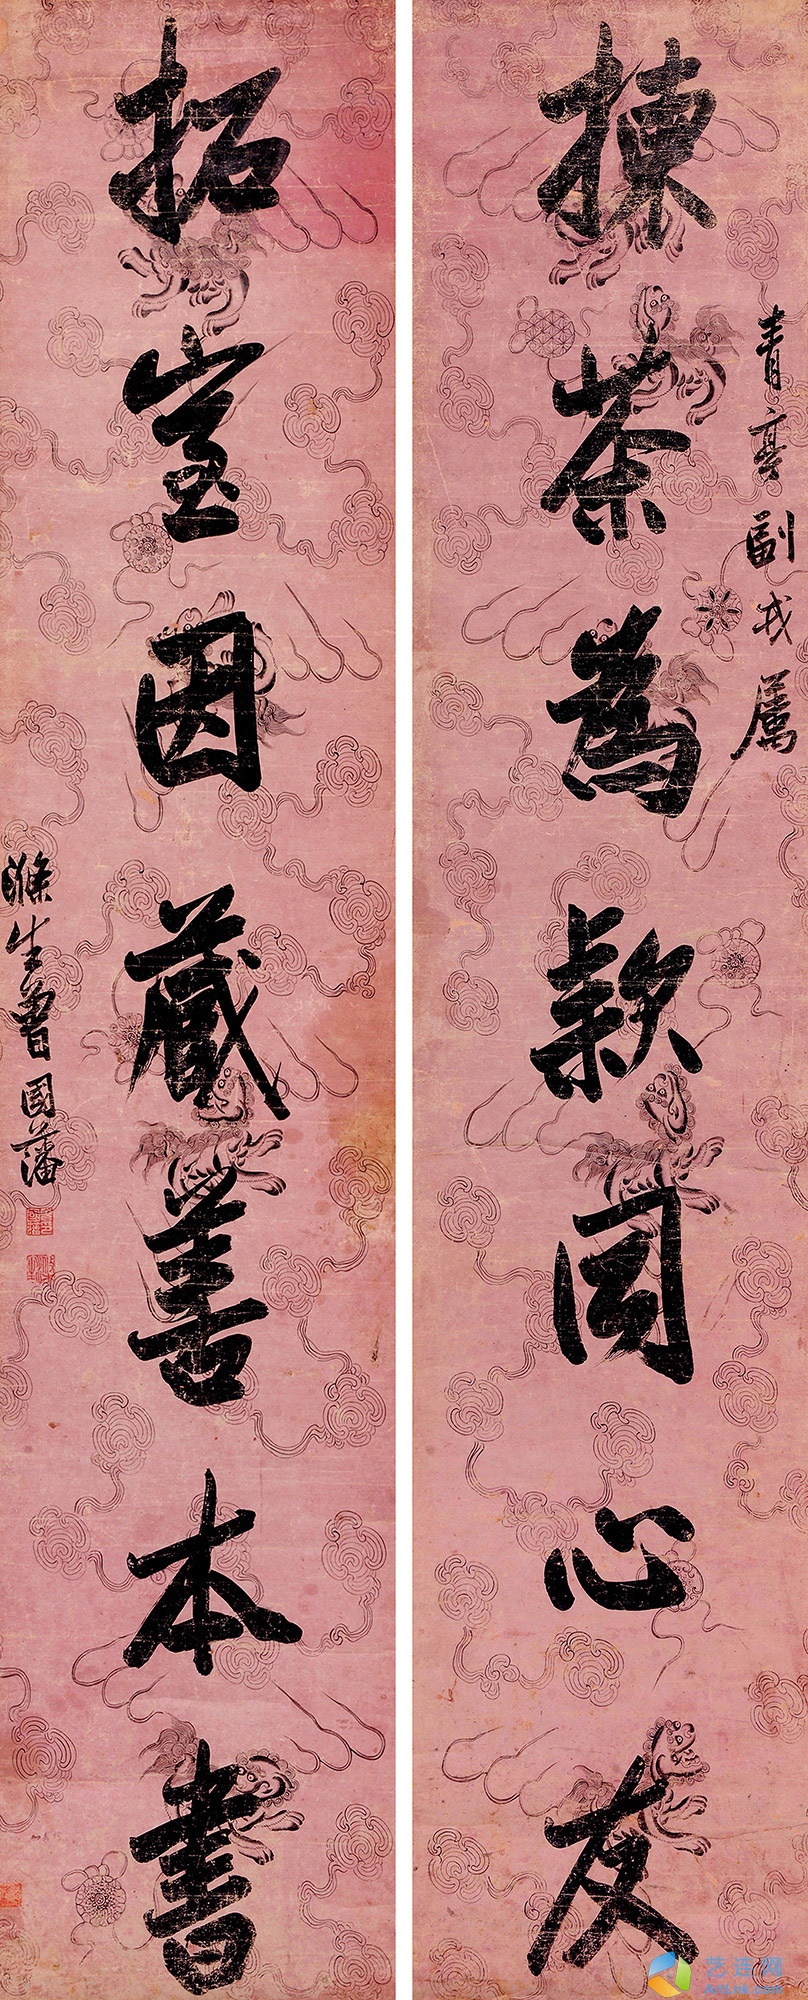 青亭副戎屬
揀茶為款同心友
拓室因藏善本書
滌生曾國藩
艺连网